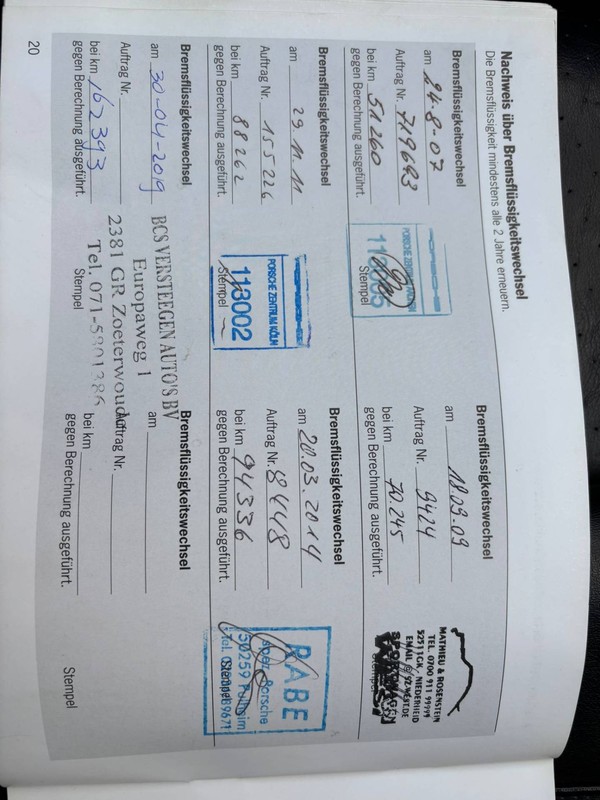 Nachweis über Bremsflüssigkeitswechsel
Die Bremsflüssigkeit mindestens alle 2 Jahre erneuern.
Bremsflüssigkeitswechsel
am 24-8-07
Auftrag Nr. 719693
bei km 51260
gegen Berechnung ausgeführt.
PORSCHE ZENTRUM
Stempel
Bremsflüssigkeitswechsel
am 18.09.09
Auftrag Nr. 9424
bei km 70.245
gegen Berechnung ausgeführt.
MATHIEU & ROSENSTEIN
TEL. 0700 911 99999
52511 GK. NIEDERHEID
EMAIL
Stempel
Bremsflüssigkeitswechsel
am 29.11.11
Auftrag Nr. 155226
bei km 88262
gegen Berechnung ausgeführt.
PORSCHE ZENTRUM KÖLN
113002
Stempel
Bremsflüssigkeitswechsel
am 20.03.2014
Auftrag Nr. 8448
bei km 94336
gegen Berechnung ausgeführt.
RABE
Porsche
50259 Pulheim
Tel.
Stempel
Bremsflüssigkeitswechsel
am 30-04-2019
Auftrag Nr.
bei km 162393
gegen Berechnung ausgeführt.
BCS VERSTEEGEN AUTO'S BV
Europaweg 1
2381 GR Zoeterwoude
Tel. 071-5801386
Stempel
Bremsflüssigkeitswechsel
am
Auftrag Nr.
bei km
gegen Berechnung ausgeführt.
Stempel
20